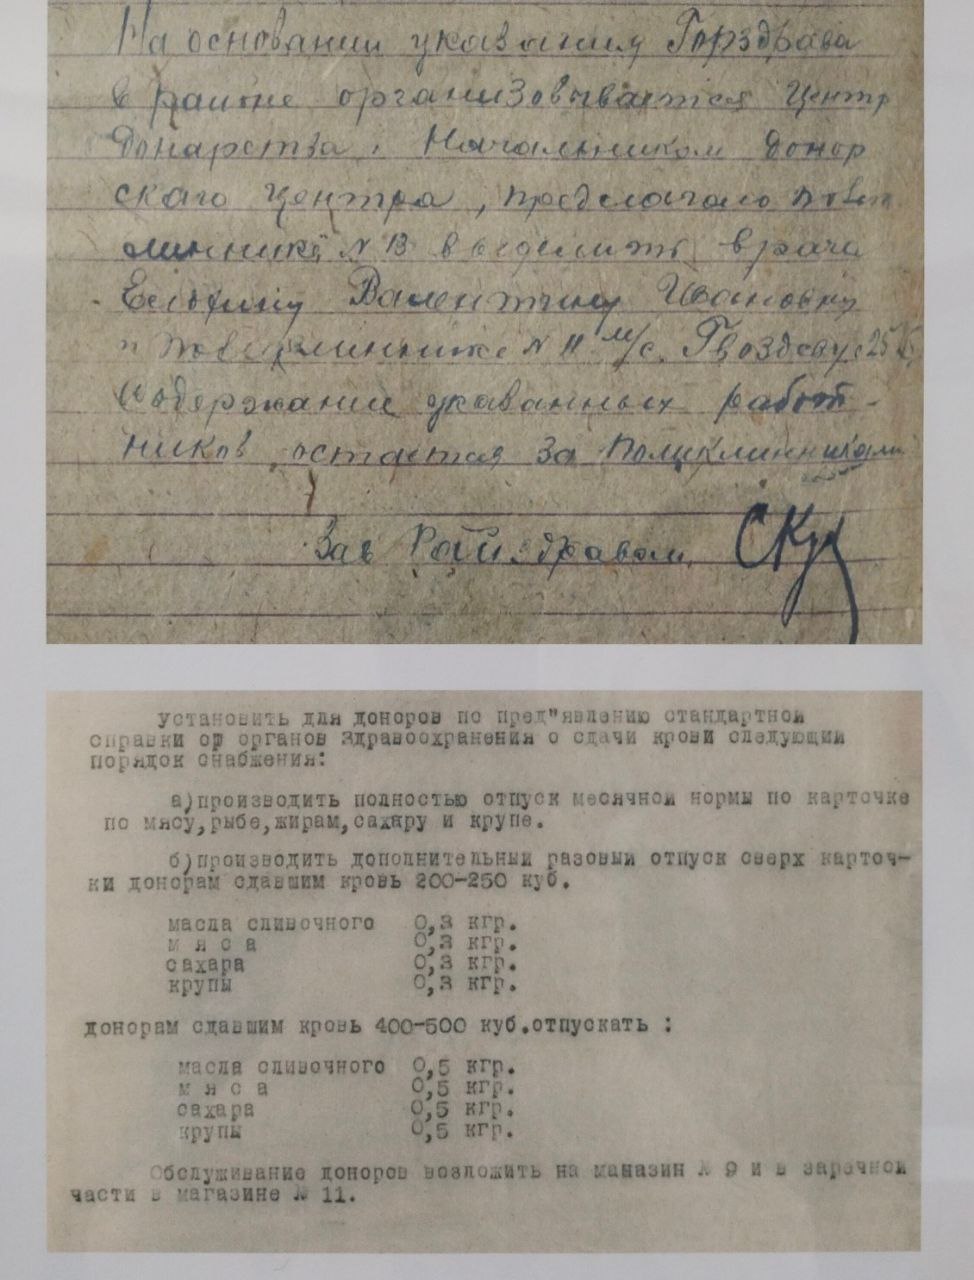 На основании указания Горздрава
в районе организовывается Центр
Донарства. Начальником донор
ского центра, предлагаю
линнике N 13 выделить врача
Валентину Ивановну
N 11 м/с. Гвоздеву 25
Содержание указанных работ-
ников остается за Поликлинниками
Зав Райздравом
СКу
установить для доноров по пред"явлению стандартной
справки от органов здравоохранения о сдачи крови следующий
порядок снабжения:
а)производить полностью отпуск месячной нормы по карточке
по мясу,рыбе,жирам,сахару и крупе.
б)производить дополнительный разовый отпуск сверх карточ-
ки донорам сдавшим кровь 200-250 куб.
масла сливочного 0,3 кгр.
м я с а 0,3 кгр.
сахара 0,3 кгр.
крупы 0,3 кгр.
донорам сдавшим кровь 400-500 куб.отпускать :
масла сливочного 0,5 кгр.
м я с а 0,5 кгр.
сахара 0,5 кгр.
крупы 0,5 кгр.
Обслуживание доноров возложить на маназин № 9 и в заречной
части в магазине № 11.